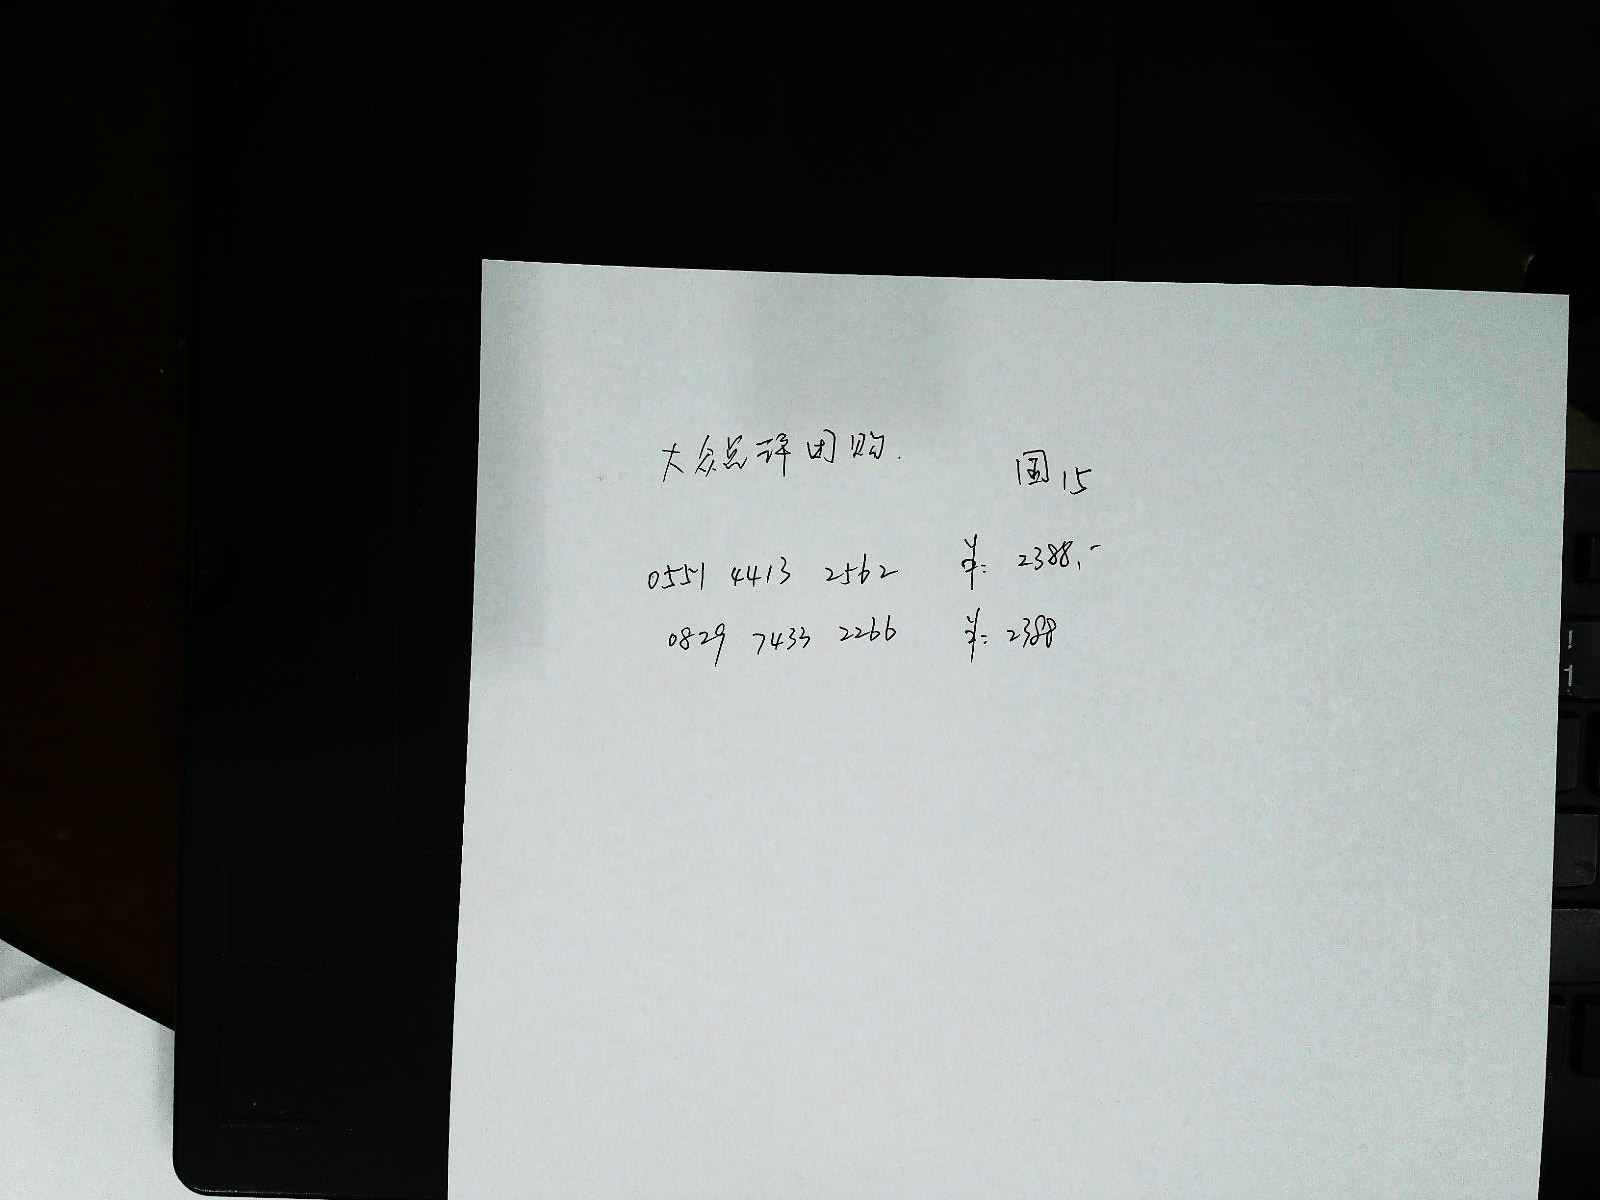 大众点评团购. 国15
0551 4413 2562 ¥: 2388.-
0829 7433 2266 ¥: 2388
!
1